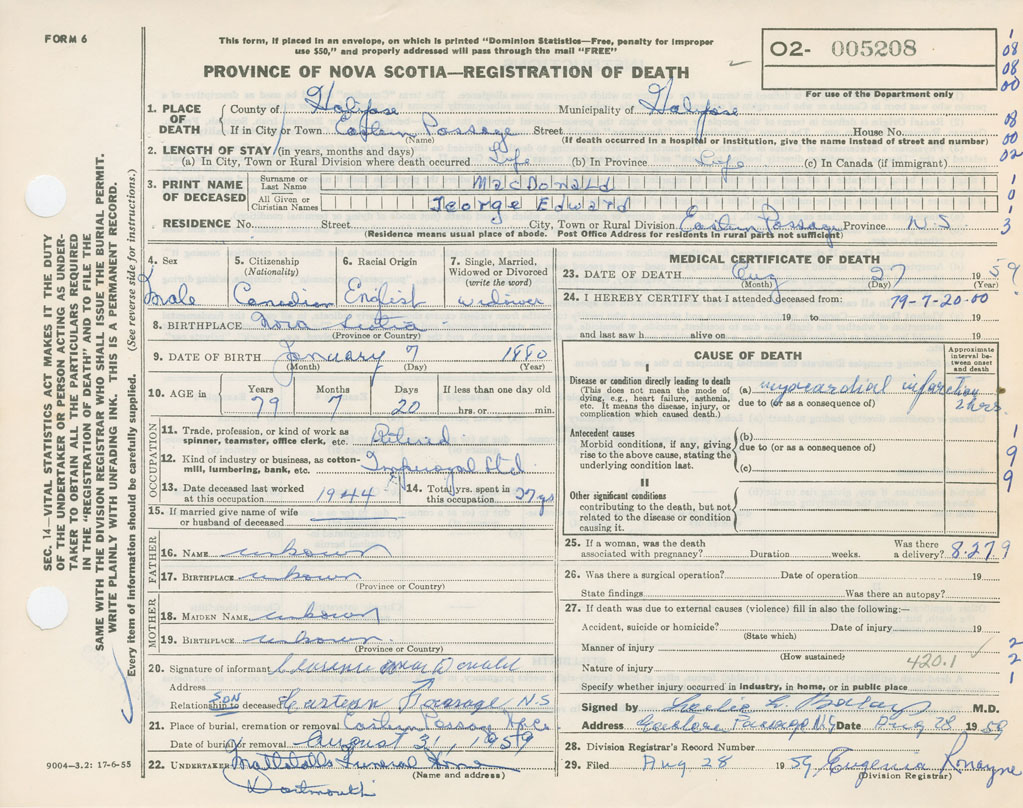 FORM 6
This form, if placed in an envelope, on which is printed "Dominion Statistics—Free, penalty for improper
use $50," and properly addressed will pass through the mail "FREE"
PROVINCE OF NOVA SCOTIA—REGISTRATION OF DEATH
O2- 005208
For use of the Department only
1
08
08
00
08
00
02
1
0
1
3
1. PLACE OF DEATH County of Halifax Municipality of Halifax
If in City or Town Eastern Passage Street House No.
(Name) (If death occurred in a hospital or institution, give the name instead of street and number)
2. LENGTH OF STAY (in years, months and days)
(a) In City, Town or Rural Division where death occurred Life (b) In Province Life (c) In Canada (if immigrant)
3. PRINT NAME OF DECEASED Surname or Last Name MacDonald
All Given or Christian Names George Edward
RESIDENCE No. Street City, Town or Rural Division Eastern Passage Province N.S
(Residence means usual place of abode. Post Office Address for residents in rural parts not sufficient)
4. Sex 5. Citizenship (Nationality) 6. Racial Origin 7. Single, Married, Widowed or Divorced (write the word)
Male Canadian English widower
8. BIRTHPLACE Nova Scotia
(Province or Country)
9. DATE OF BIRTH January 7 1880
(Month) (Day) (Year)
10. AGE in Years Months Days If less than one day old
79 7 20 hrs. or min.
OCCUPATION
11. Trade, profession, or kind of work as spinner, teamster, office clerk, etc. Retired
12. Kind of industry or business, as cotton-mill, lumbering, bank, etc. Imperoyal Ltd
13. Date deceased last worked at this occupation 1944 14. Total yrs. spent in this occupation 27 yrs
15. If married give name of wife or husband of deceased
FATHER
16. NAME unknown
17. BIRTHPLACE unknown
(Province or Country)
MOTHER
18. MAIDEN NAME unknown
19. BIRTHPLACE unknown
(Province or Country)
20. Signature of informant Clarence MacDonald
Address
Relationship to deceased SON Eastern Passage N.S
21. Place of burial, cremation or removal Eastern Passage
Date of burial or removal August 31, 1959
22. UNDERTAKER Funeral Home
(Name and address)
Dartmouth
9004-3.2: 17-6-55
MEDICAL CERTIFICATE OF DEATH
23. DATE OF DEATH Aug 27 1959
(Month) (Day)
24. I HEREBY CERTIFY that I attended deceased from: 79-7-20-00
19 to 19
and last saw h alive on 19
CAUSE OF DEATH
Approximate interval between onset and death
I
Disease or condition directly leading to death
(This does not mean the mode of dying, e.g., heart failure, asthenia, etc. It means the disease, injury, or complication which caused death.)
(a) myocardial infarction 2 hrs.
due to (or as a consequence of)
Antecedent causes
Morbid conditions, if any, giving rise to the above cause, stating the underlying condition last.
(b)
due to (or as a consequence of)
(c)
1
9
9
II
Other significant conditions
contributing to the death, but not related to the disease or condition causing it.
25. If a woman, was the death associated with pregnancy? Duration weeks. Was there a delivery? 8.27.9
26. Was there a surgical operation? Date of operation 19
State findings Was there an autopsy?
27. If death was due to external causes (violence) fill in also the following:—
Accident, suicide or homicide? Date of injury 19
(State which)
Manner of injury 2
(How sustained)
Nature of injury 420.1 2
Specify whether injury occurred in industry, in home, or in public place 1
Signed by Leslie M.D.
Address Eastern Passage N.S Date Aug 28 1959
28. Division Registrar's Record Number
29. Filed Aug 28 1959 Eugenia Ronayne
(Division Registrar)
SEC. 14—VITAL STATISTICS ACT MAKES IT THE DUTY
OF THE UNDERTAKER OR PERSON ACTING AS UNDER-
TAKER TO OBTAIN ALL THE PARTICULARS REQUIRED
IN THE "REGISTRATION OF DEATH" AND TO FILE THE
SAME WITH THE DIVISION REGISTRAR WHO SHALL ISSUE THE BURIAL PERMIT.
WRITE PLAINLY WITH UNFADING INK. THIS IS A PERMANENT RECORD.
Every item of information should be carefully supplied. (See reverse side for instructions.)